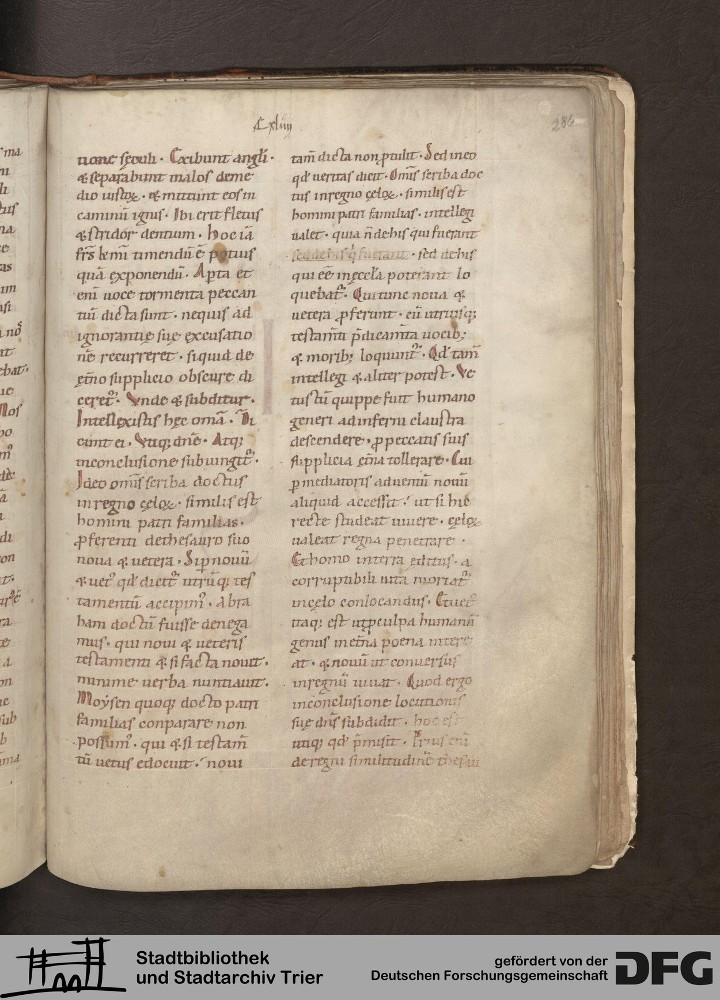 Cxliiij
286
tione seculi · Exibunt angli ·
& separabunt malos de me
dio iustoꝝ · & mittunt eos in
caminū ignis · Ibi erit fletus
& stridor dentium · hoc iā
frs̄ km̄i timendū ē potius
quā exponendū · Aperta et
enī uoce tormenta peccan
tiū dicta sunt · ne quis ad
ignorantię suę excusatio
nē recurreret · si quid de
ęt̄no supplicio obscure di
ceret᷑ · Unde & subditur ·
Intellexistis hęc om̄a · Di
cunt ei · Utiq; dn̄e · Atq;
in conclusione subiungit᷑ ·
Ideo om̄is scriba doctus
in regno cęloꝝ · similis est
homini patri familias ·
ꝓferenti de thesauro suo
noua & uetera · Si p nouū
& uet᷒ qd̄ dicit᷑ utrūq; tes
tamentū accipim᷒ · Abra
ham doctū fuisse denega
mus · qui noui & ueteris
testamenti & si facta nouit ·
minime uerba nuntiauit ·
Moysen quoq; docto patri
familias conparare non
possum᷒ · qui & si testam̄
tū uetus edocuit · noui
tam̄ dicta non ꝓtulit · Sed in eo
qd̄ ueritas dicit · Om̄is scriba doc
tus in regno cęloꝝ · similis est
homini patri familias · intellegi
ualet · quia n̄ de his qui fuerant
sed de his
qui eē in ęccła poterant lo
quebat᷑ · Qui tunc noua &
uetera ꝓferunt · cū utriusq;
testam̄ti p̄dicam̄ta uocib;
& morib; loquunt᷑ · Qd̄ tam̄
intellegi & aliter potest · Ve
tustū quippe fuit humano
generi ad inferni claustra
descendere · ꝓ peccatis suis
supplicia ęt̄na tollerare · Cui
p mediatoris aduentū nouū
aliquid accessit · ut si hic
recte studeat uiuere · cęloꝝ
ualeat regna penetrare ·
Et homo in terra editus · a
corruptibili uita moriat᷑
in cęlo conlocandus · Et uet᷒
itaq; est ut ꝓ culpa humanū
genus in et̄na poena intere
at · & nouū ut conuersus
in regnū uiuat · Quod ergo
in conclusione locutionis
suę dn̄s subdidit · hoc est
utiq; qd̄ p̄misit · Prius eni
de regni similitudinē thesau
Stadtbibliothek
und Stadtarchiv Trier
gefördert von der
Deutschen Forschungsgemeinschaft
DFG